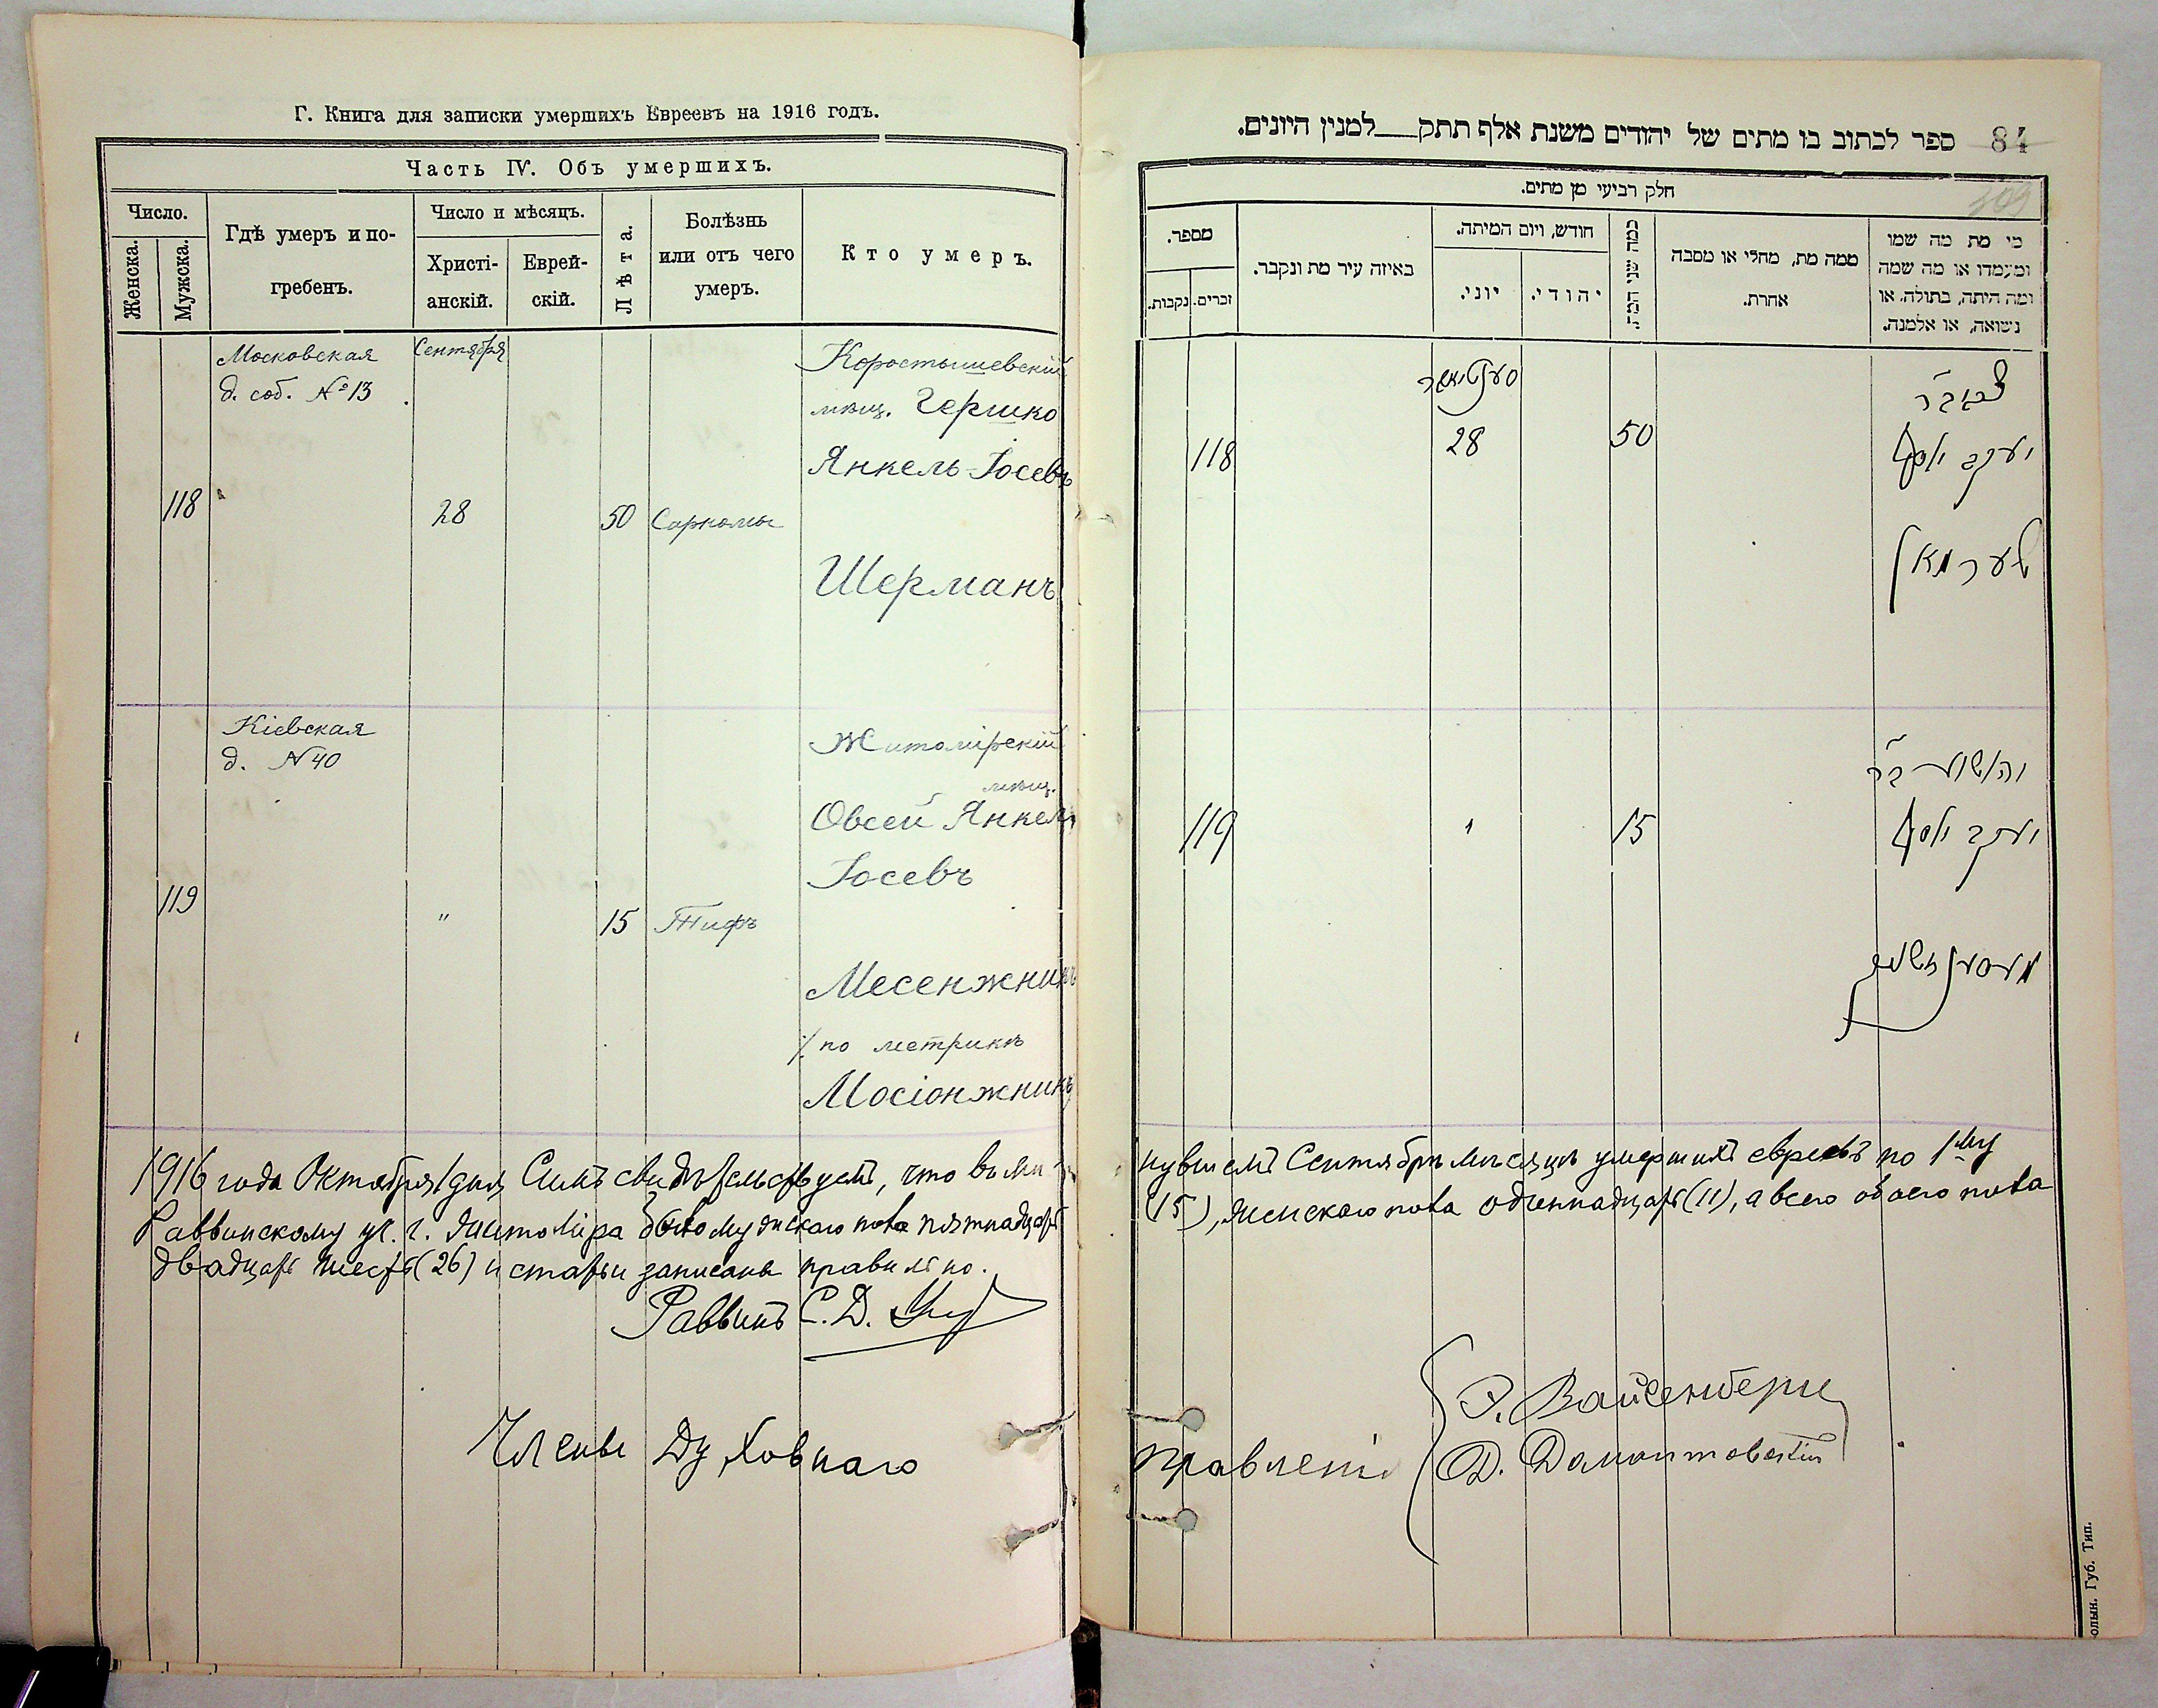 Г. Книга для записки умершихъ Евреевъ на 1916 годъ.
Часть IV. Объ умершихъ.
Число.
Женска.
Мужска.
Гдѣ умеръ и по-
гребенъ.
Число и мѣсяцъ.
Христі-
анскій.
Еврей-
скій.
Лѣта.
Болѣзнь
или отъ чего
умеръ.
Кто умеръ.
Московская
д. соб. № 13
Сентября
118
28
50
Саркома
Коростышевскій
мѣщ. Гершко
Янкель-Іосевъ
Шерманъ
Кіевская
д. N 40
119
"
15
Тифъ
Житомірскій
мѣщ.
Овсей Янкель
Іосевъ
Месенжникъ
по метрикѣ
Мосіонжникъ
1916 года Октября 1 дня Симъ свидѣтельствуемъ, что въ ми-
Раввинскому уч. г. Житоміра мужскаго пола пятнадцать
двадцать шесть (26) и статьи записаны правильно.
Раввинъ С. Д.
Члены Духовнаго
84
ספר לכתוב בו מתים של יהודים משנת אלף תתק למנין היונים.
חלק רביעי מן מתים.
מספר.
זכרים.
נקבות.
באיזה עיר מת ונקבר.
חודש, ויום המיתה.
יוני.
יהודי.
כמה שני המת.
ממה מת, מחלי או מסבה
אחרת.
מי מת מה שמו
ומעמדו או מה שמה
ומה היתה, בתולה, או
נשואה, או אלמנה.
118
28
50
יעקב יוסף
שערמאן
119
15
יהושע בר
יעקב יוסף
нувшемъ Сентябрѣ мѣсяцѣ умершихъ евреевъ по 1му
(15), женскаго пола одиннадцать (11), а всего обоего пола
Правленія
Вайсенбергъ
Д.
олын. Губ. Тип.